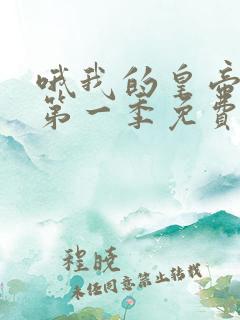 哦我的皇帝
第一季免費
程晓
未经同意禁止转载